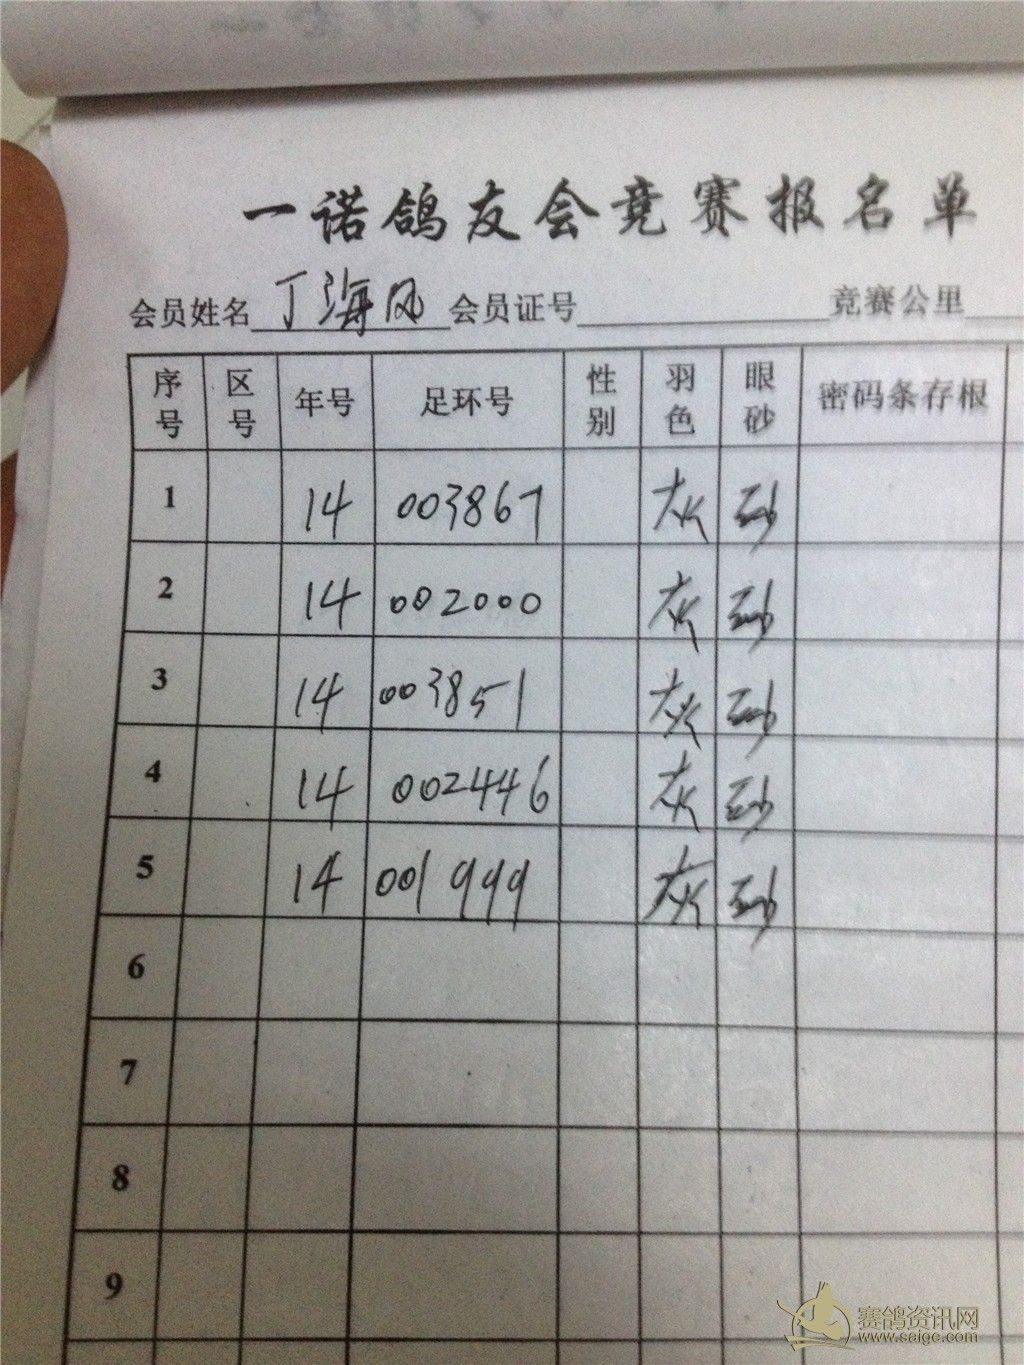 一诺鸽友会竞赛报名单
会员姓名 丁海风 会员证号 竞赛公里
序号 区号 年号 足环号 性别 羽色 眼砂 密码条存根
1 14 003867 灰 砂
2 14 002000 灰 砂
3 14 003851 灰 砂
4 14 002446 灰 砂
5 14 001999 灰 砂
6
7
8
9
赛鸽资讯网
www.saige.com